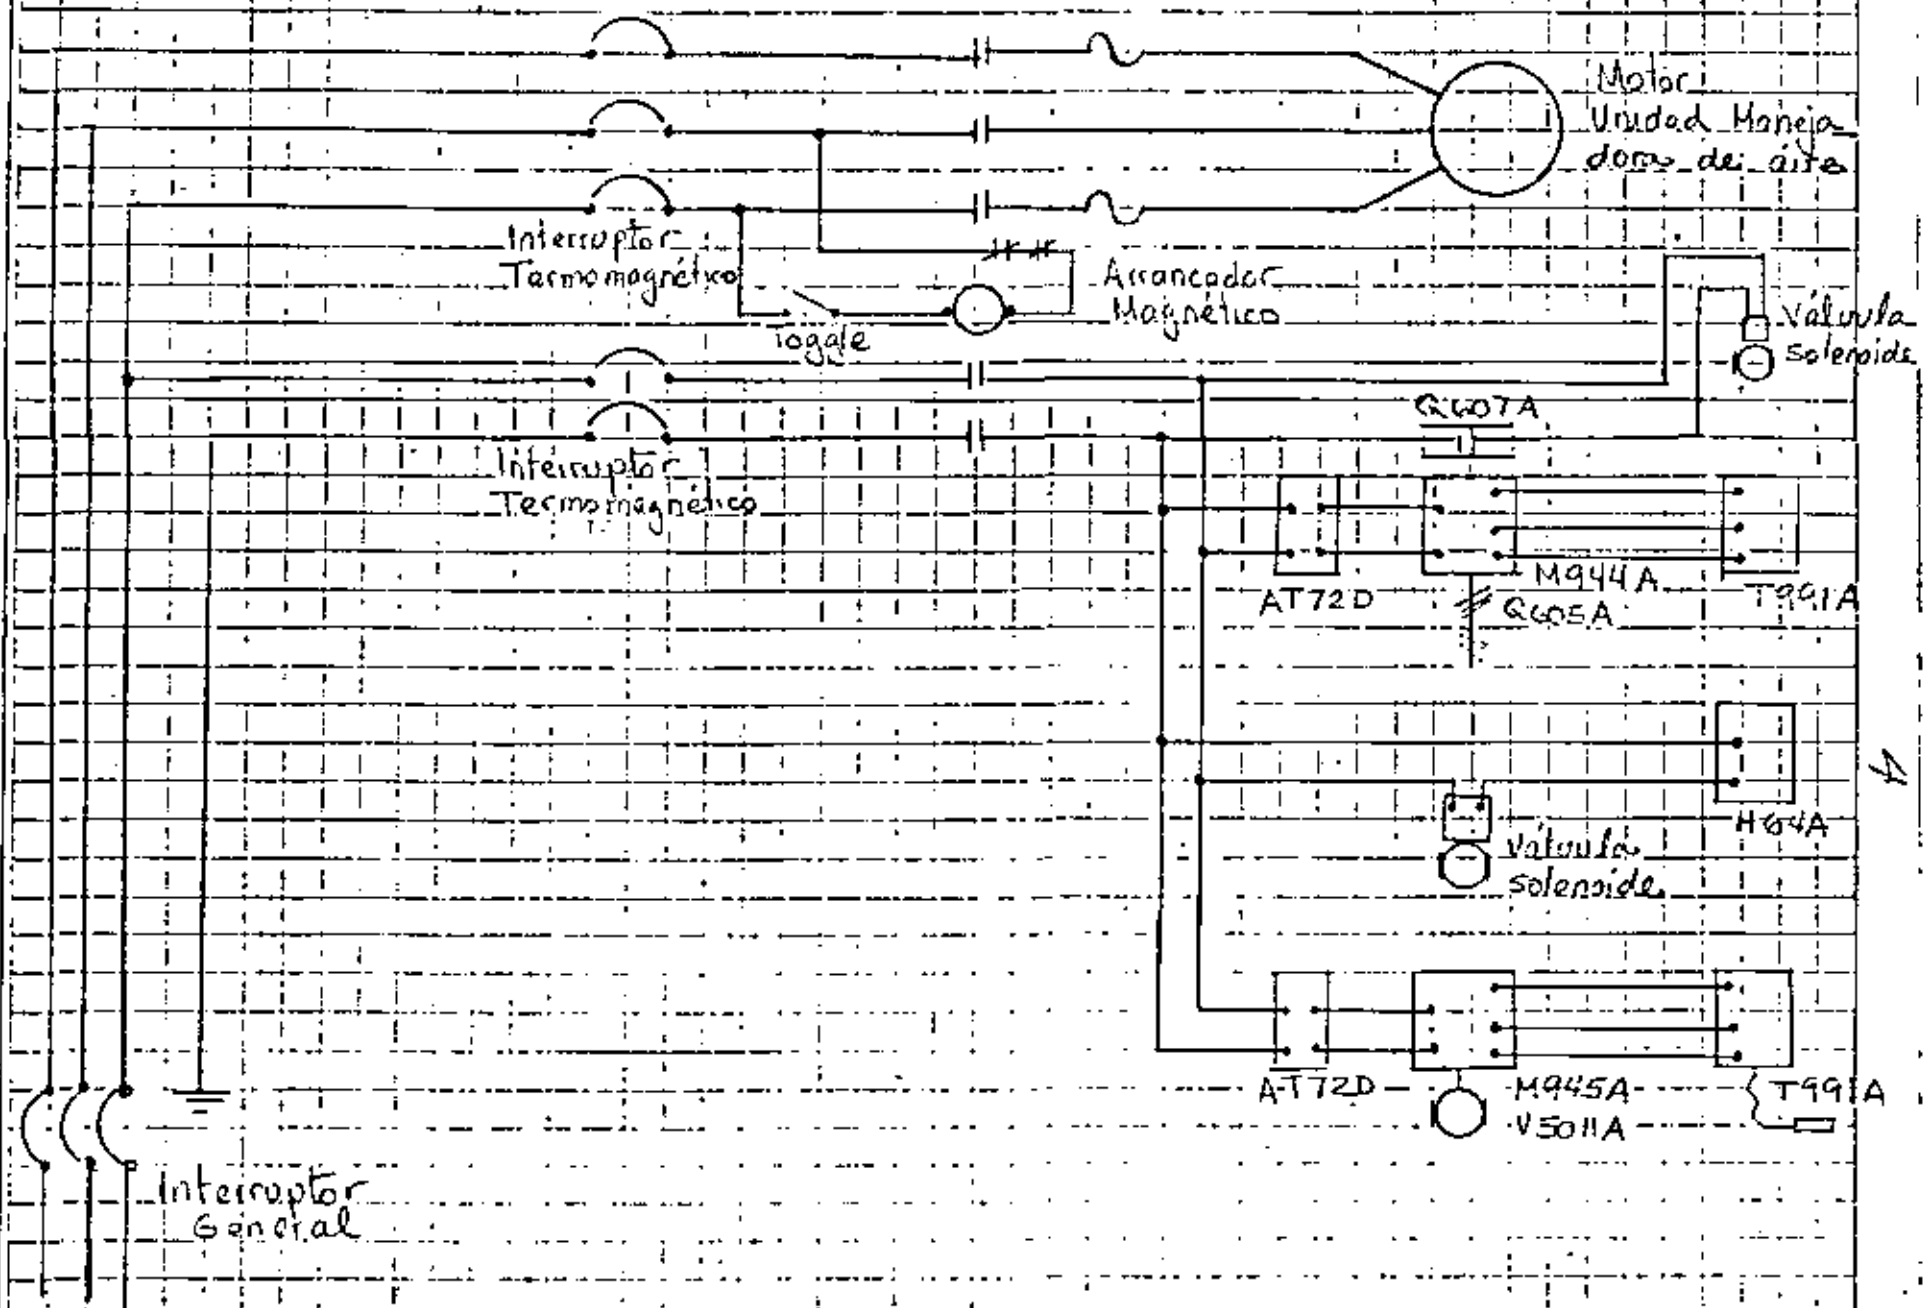 Motor
Unidad Maneja
dora de aire
Interruptor
Termomagnético
Arrancador
Magnético
Toggle
Válvula
Solenoide
Q607A
Interruptor
Termomagnético
AT72D
M944A
Q605A
T991A
H64A
Válvula
solenoide
AT72D
M945A
V5011A
T991A
Interruptor
General
4